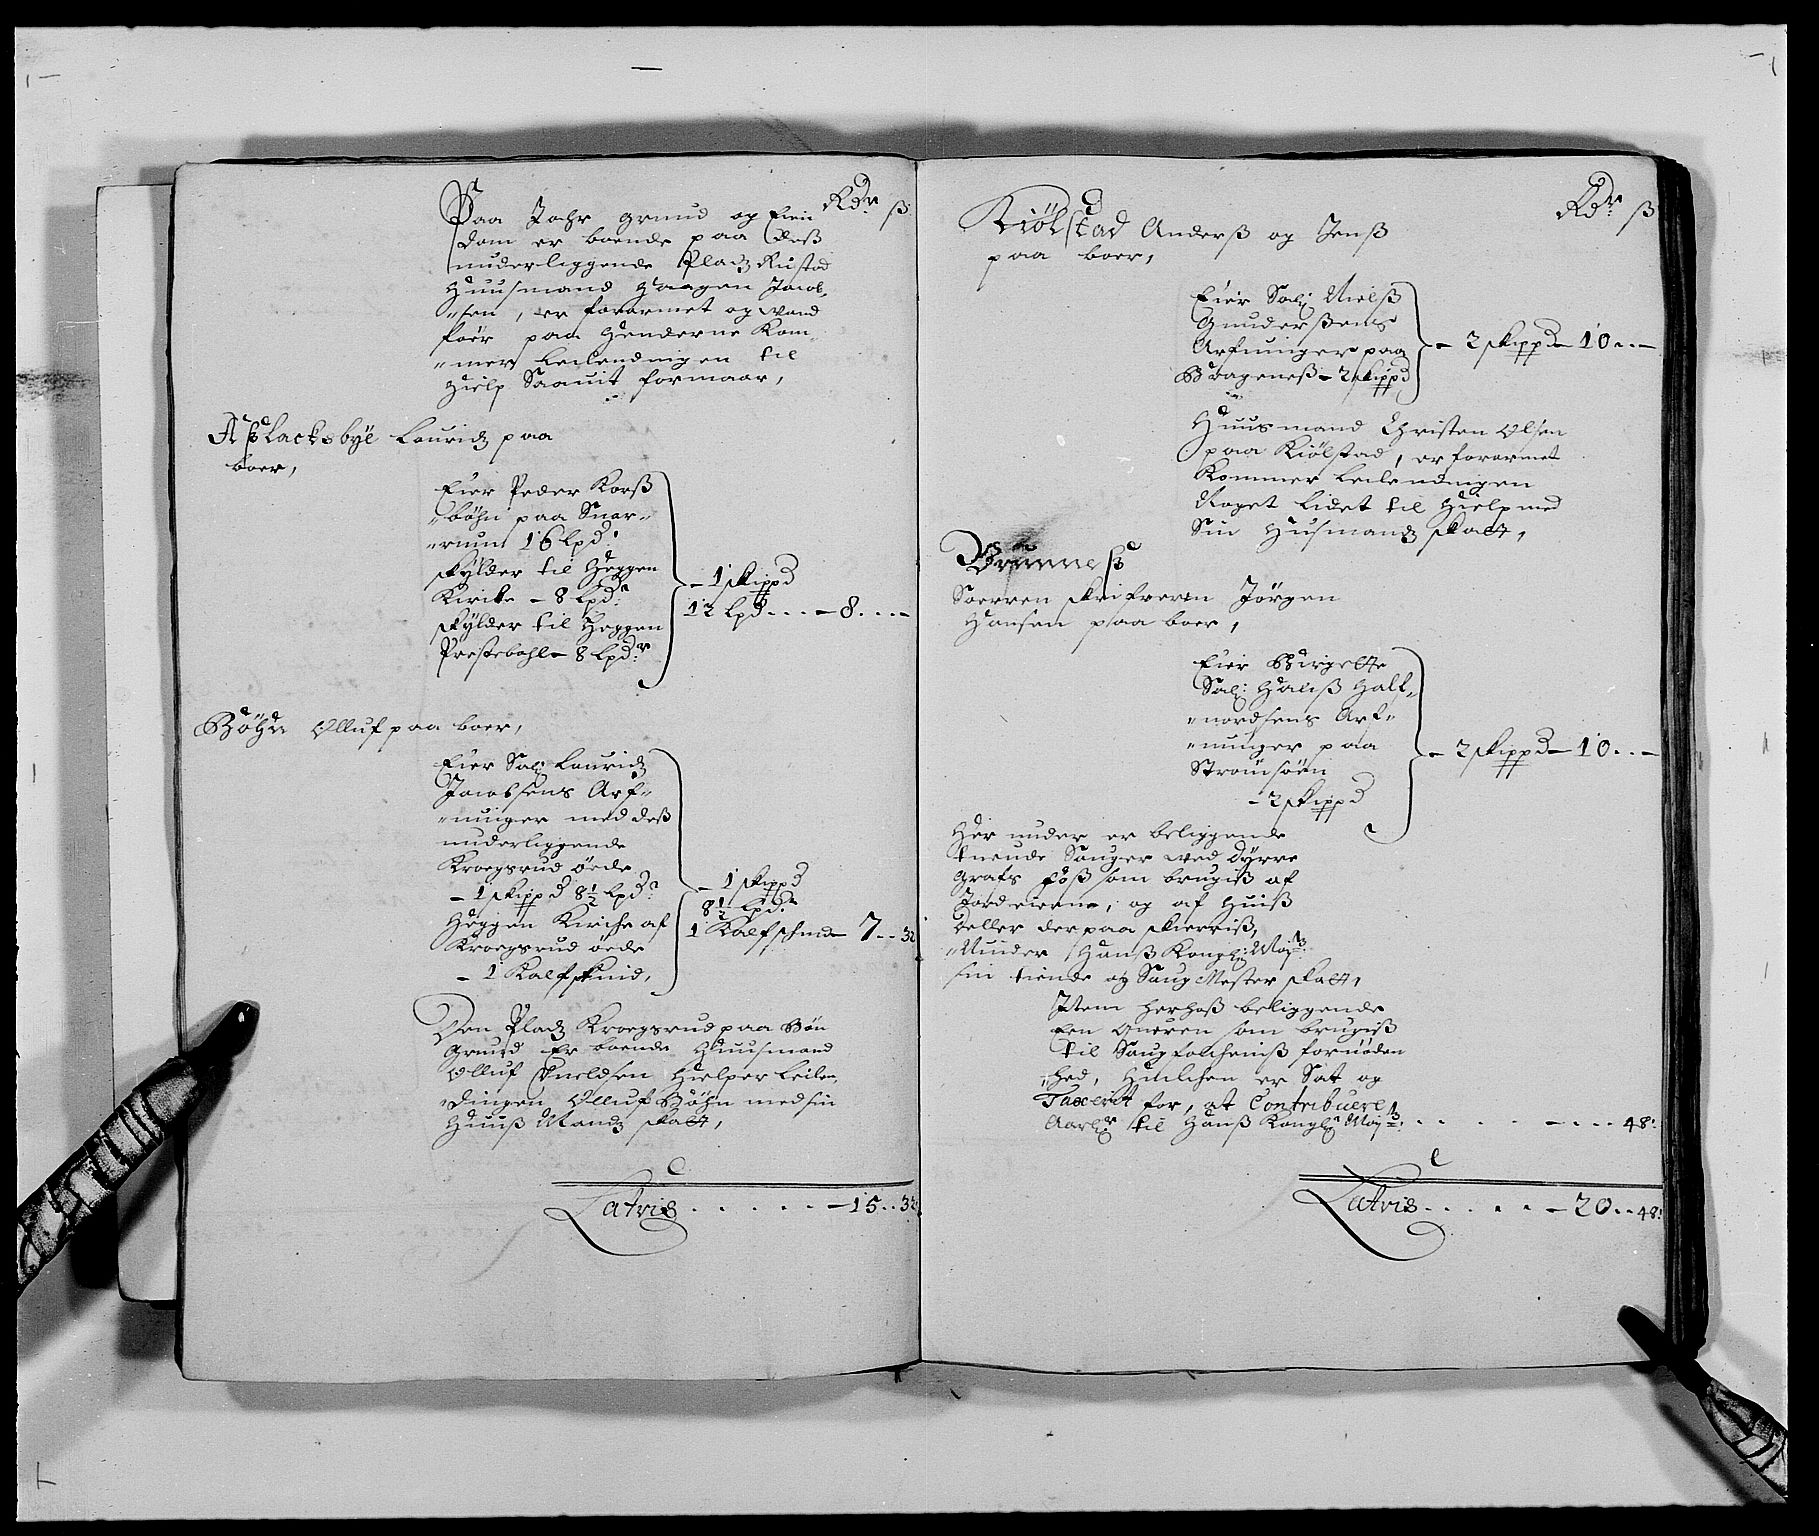 Rdr ß
Paa Johr grund og Eien
dom er boende paa dess
underliggende Pladz Rustad
Huusmand Haagen Jacob,,
,,sen, er forarmet og vand
føer paa Henderne kom,,
,,mer Leilendingen til
Hielp Saauit formaar,
Asslacksbye Lauridz paa
boer,
Eier Peder Korß
,,bøhn paa Snar,,
,,rum 16 lpd:
skylder til Heggen
Kircke - 8 lpd:
skylder til Heggen
Prestebohl - 8 lpdr:
- 1 skippd
12 lpd . . . - 8 . . . -
Bøhn Olluf paa boer,
Eier Sal: Lauridz
Jacobsens Arf,,
,,uinger med dess
underliggende
Kroegsrud øede
- 1 skippd 8½ lpd:
Heggen Kirche af
Kroegsrud øede
- 1 Kalfskind,
- 1 skippd
8½ lpd:
1 Kalfschind - 7 . . 32
Den Pladz Kroegsrud paa Bøn
Grund Er boende Huusmand
Olluf Eneldsen Hielper Leilen,,
,,dingen Olluf Bøhn med sin
Huuß Mandz skatt,
Latris . . . . . . - 15 . . 32
Rdr ß
Kiølstad Anderß og Jenß
paa boer,
Eier Sal: Nielß
Gunderßens
Arfuinger paa
Bragenes - 2 skippd
- 2 skippd - 10 . . -
Huusmand Christen Olsen
paa Kiølstad, er forarmet
Kommer Leilendingen
Noget Lidet til Hielp med
Sin Husmandz skatt,
Brunneß
Soerren skrifveren Jørgen
Hansen paa boer,
Eier Birgette
Sal: Halß Half,,
,,uordsens Arf,,
,,uinger paa
Strømsøen
- 2 skippd
- 2 skippd - 10 . . -
Her under er beliggende
tuende Sauger ved Dyrre
Grafs Foß som brugiß af
Jordeierne, og af Huiß
Deller der paa skierriß,
,,Nuider Hanß Kongl: Mayts
sin tiende og Saug Mester skatt,
Item herhoß beliggende
Een Queren som brugiß
til Saugfolcheniß fornøden
,,hed, Huilchen er Sat og
Taxerit for, at Contribuere
Aarl: til Hanß Kongl: Mayts: . . . . . - . . . 48:
Latris . . . . . - 20 . . 48: